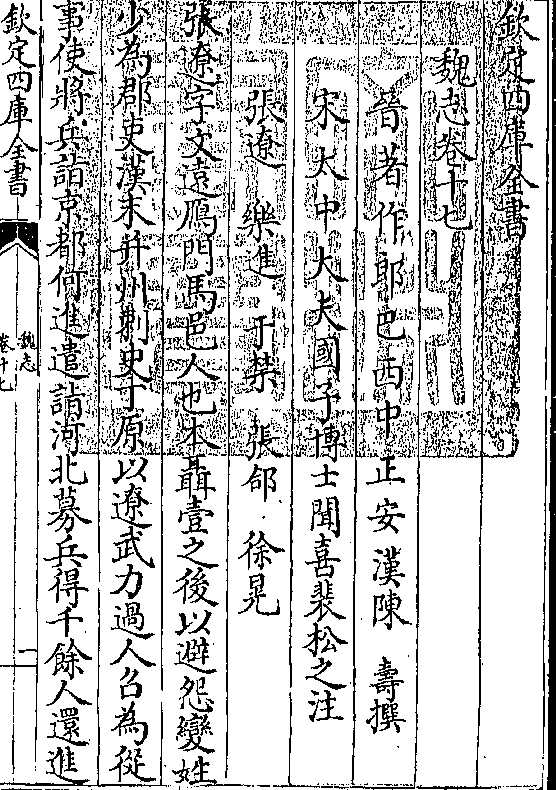 欽定四庫全書
魏志卷十七
晉著作郎巴西中正安漢陳 壽撰
宋太中大夫國子博士聞喜裴松之注
張遼 樂進 于禁 張郃 徐晃
張遼字文遠鴈門馬邑人也本聶壹之後以避怨變姓
少為郡吏漢末并州刺史丁原以遼武力過人召為從
事使將兵詣京都何進遣詣河北募兵得千餘人還進
欽定四庫全書
魏志
卷十七
一